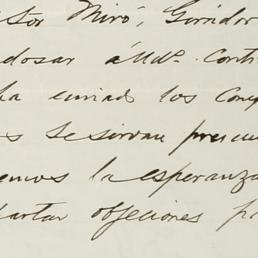 stor Miró, Gorridor
dosar á Udº. contr
ha enviado los Com
s se sirvan presen
emos la esperanza
artar objeciones pa